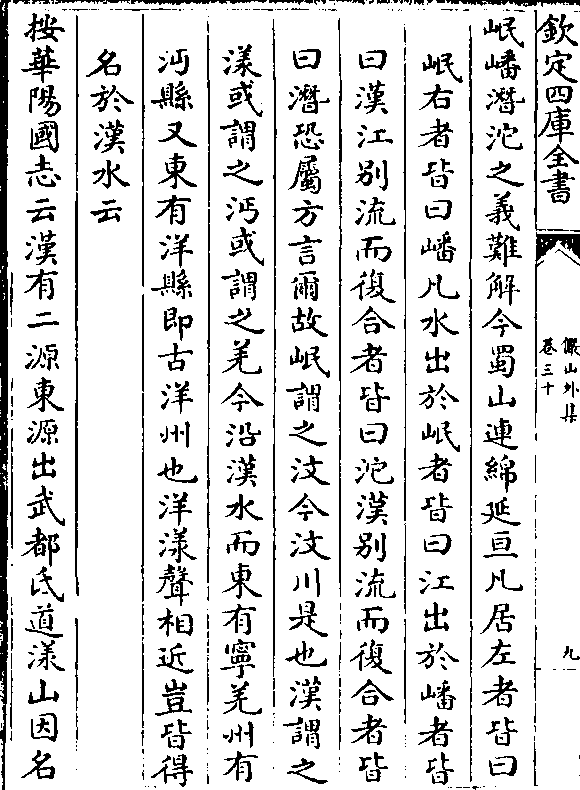 欽定四庫全書
儼山外集
卷三十
九
岷嶓潛沱之義難解今蜀山連綿延亘凡居左者皆曰
岷右者皆曰嶓凡水出於岷者皆曰江出於嶓者皆
曰漢江别流而復合者皆曰沱漢别流而復合者皆
曰潛恐屬方言爾故岷謂之汶今汶川是也漢謂之
漾或謂之沔或謂之羌今沿漢水而東有寧羌州有
沔縣又東有洋縣即古洋州也洋漾聲相近豈皆得
名於漢水云
按華陽國志云漢有二源東源出武都氐道漾山因名